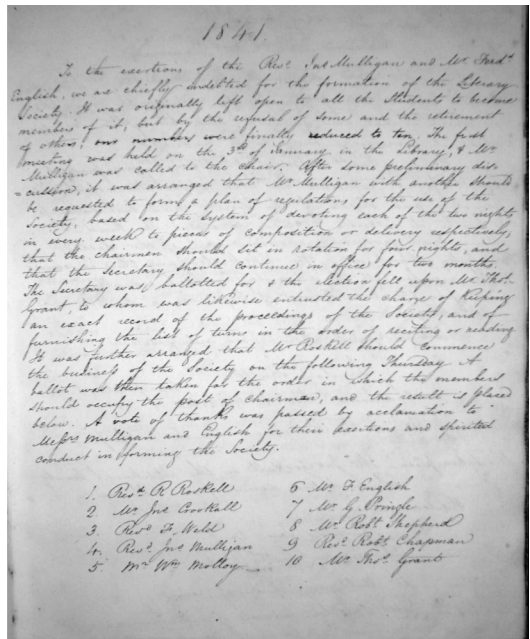 1841.
To the exertions of the Revd. Jno Mulligan and Mr. Fredk
English, we are chiefly indebted for the formation of the Literary
Society. It was originally left open to all the Students to become
members of it, but by the refusal of some and the retirement
of others, our numbers were finally reduced to ten. The first
meeting was held on the 3rd of January in the Library, & Mr
Mulligan was called to the chair. After some preliminary dis-
=cussion, it was arranged that Mr Mulligan with another should
be requested to form a plan of regulations for the use of the
Society, based on the system of devoting each of the two nights
in every week to pieces of composition or delivery respectively,
that the chairmen should sit in rotation for four nights, and
that the Secretary should continue in office for two months.
The Secretary was ballotted for & the election fell upon Mr Thos.
Grant, to whom was likewise entrusted the charge of keeping
an exact record of the proceedings of the Society, and of
furnishing the list of turns in the order of reciting or reading.
It was further arranged that Mr Roskell should commence
the business of the Society on the following Thursday. A
ballot was then taken for the order in which the members
should occupy the post of chairman, and the result is placed
below. A vote of thanks was passed by acclamation to
Messrs Mulligan and English for their exertions and spirited
conduct in forming the Society.
1. Revd. R Roskell
2 Mr Jno Crookall
3. Revd. F. Weld
4. Revd. Jno Mulligan
5. Mr Wm Molloy
6 Mr F English
7 Mr G. Pringle
8 Mr Robt Shepperd
9 Revd. Robt. Chapman
10 Mr Thos. Grant